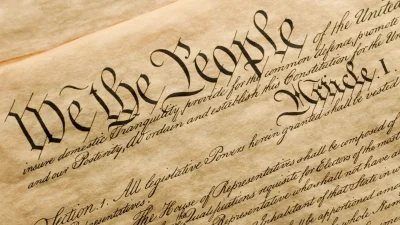 We the People of the United
insure domestic Tranquility, provide for the common defence, promote
and our Posterity, do ordain and establish this Constitution for the Uni
Article. I.
Section. 1. All legislative Powers herein granted shall be vested
Representatives.
The House of Representatives shall be composed of
Qualifications requisite for Electors of the most
Representative who shall not have a
Inhabitant of that State in w
shall be apportioned amo